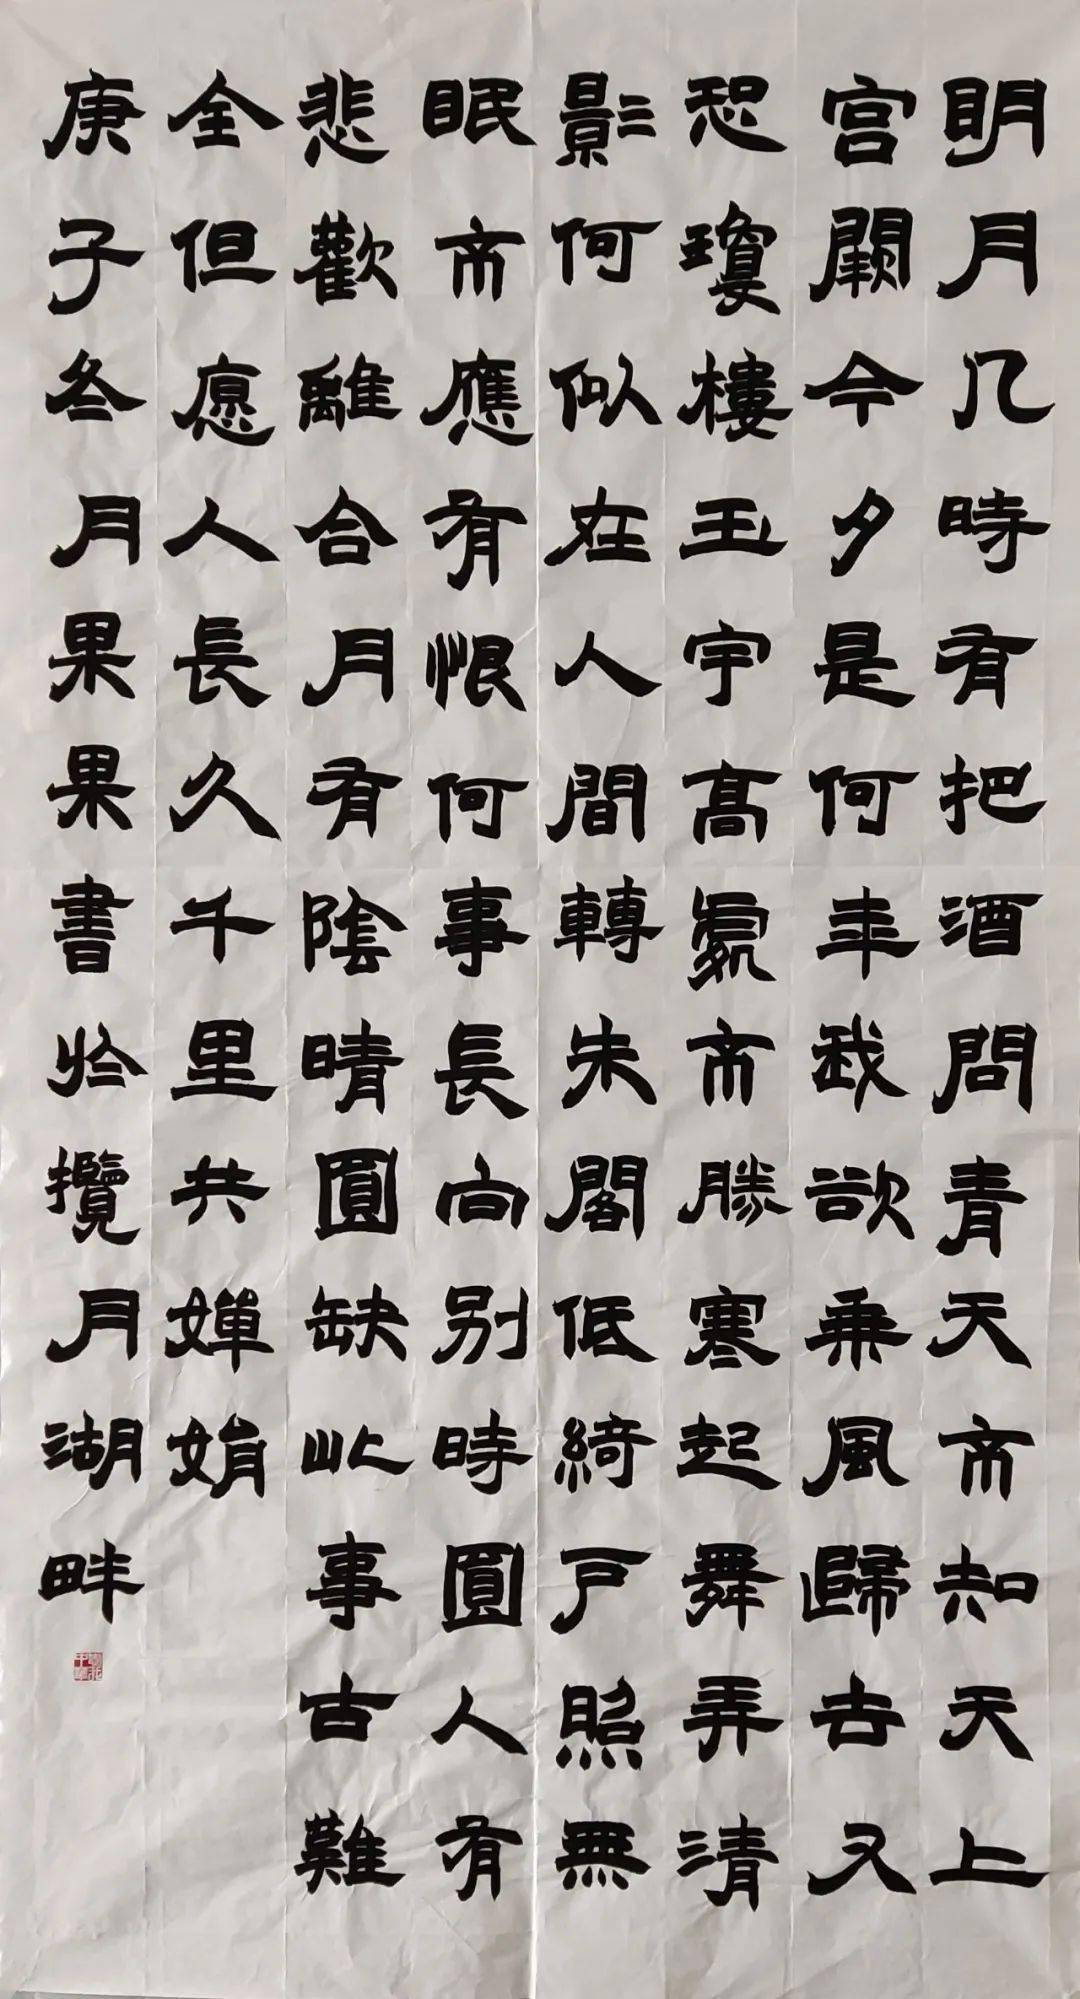 明月几時有把酒問青天不知天上
宮闕今夕是何年我欲乘風歸去又
恐瓊樓玉宇高處不勝寒起舞弄清
影何似在人間轉朱閣低綺戶照無
眠不應有恨何事長向別時圓人有
悲歡離合月有陰晴圓缺此事古難
全但愿人長久千里共嬋娟
庚子冬月果果書於攬月湖畔